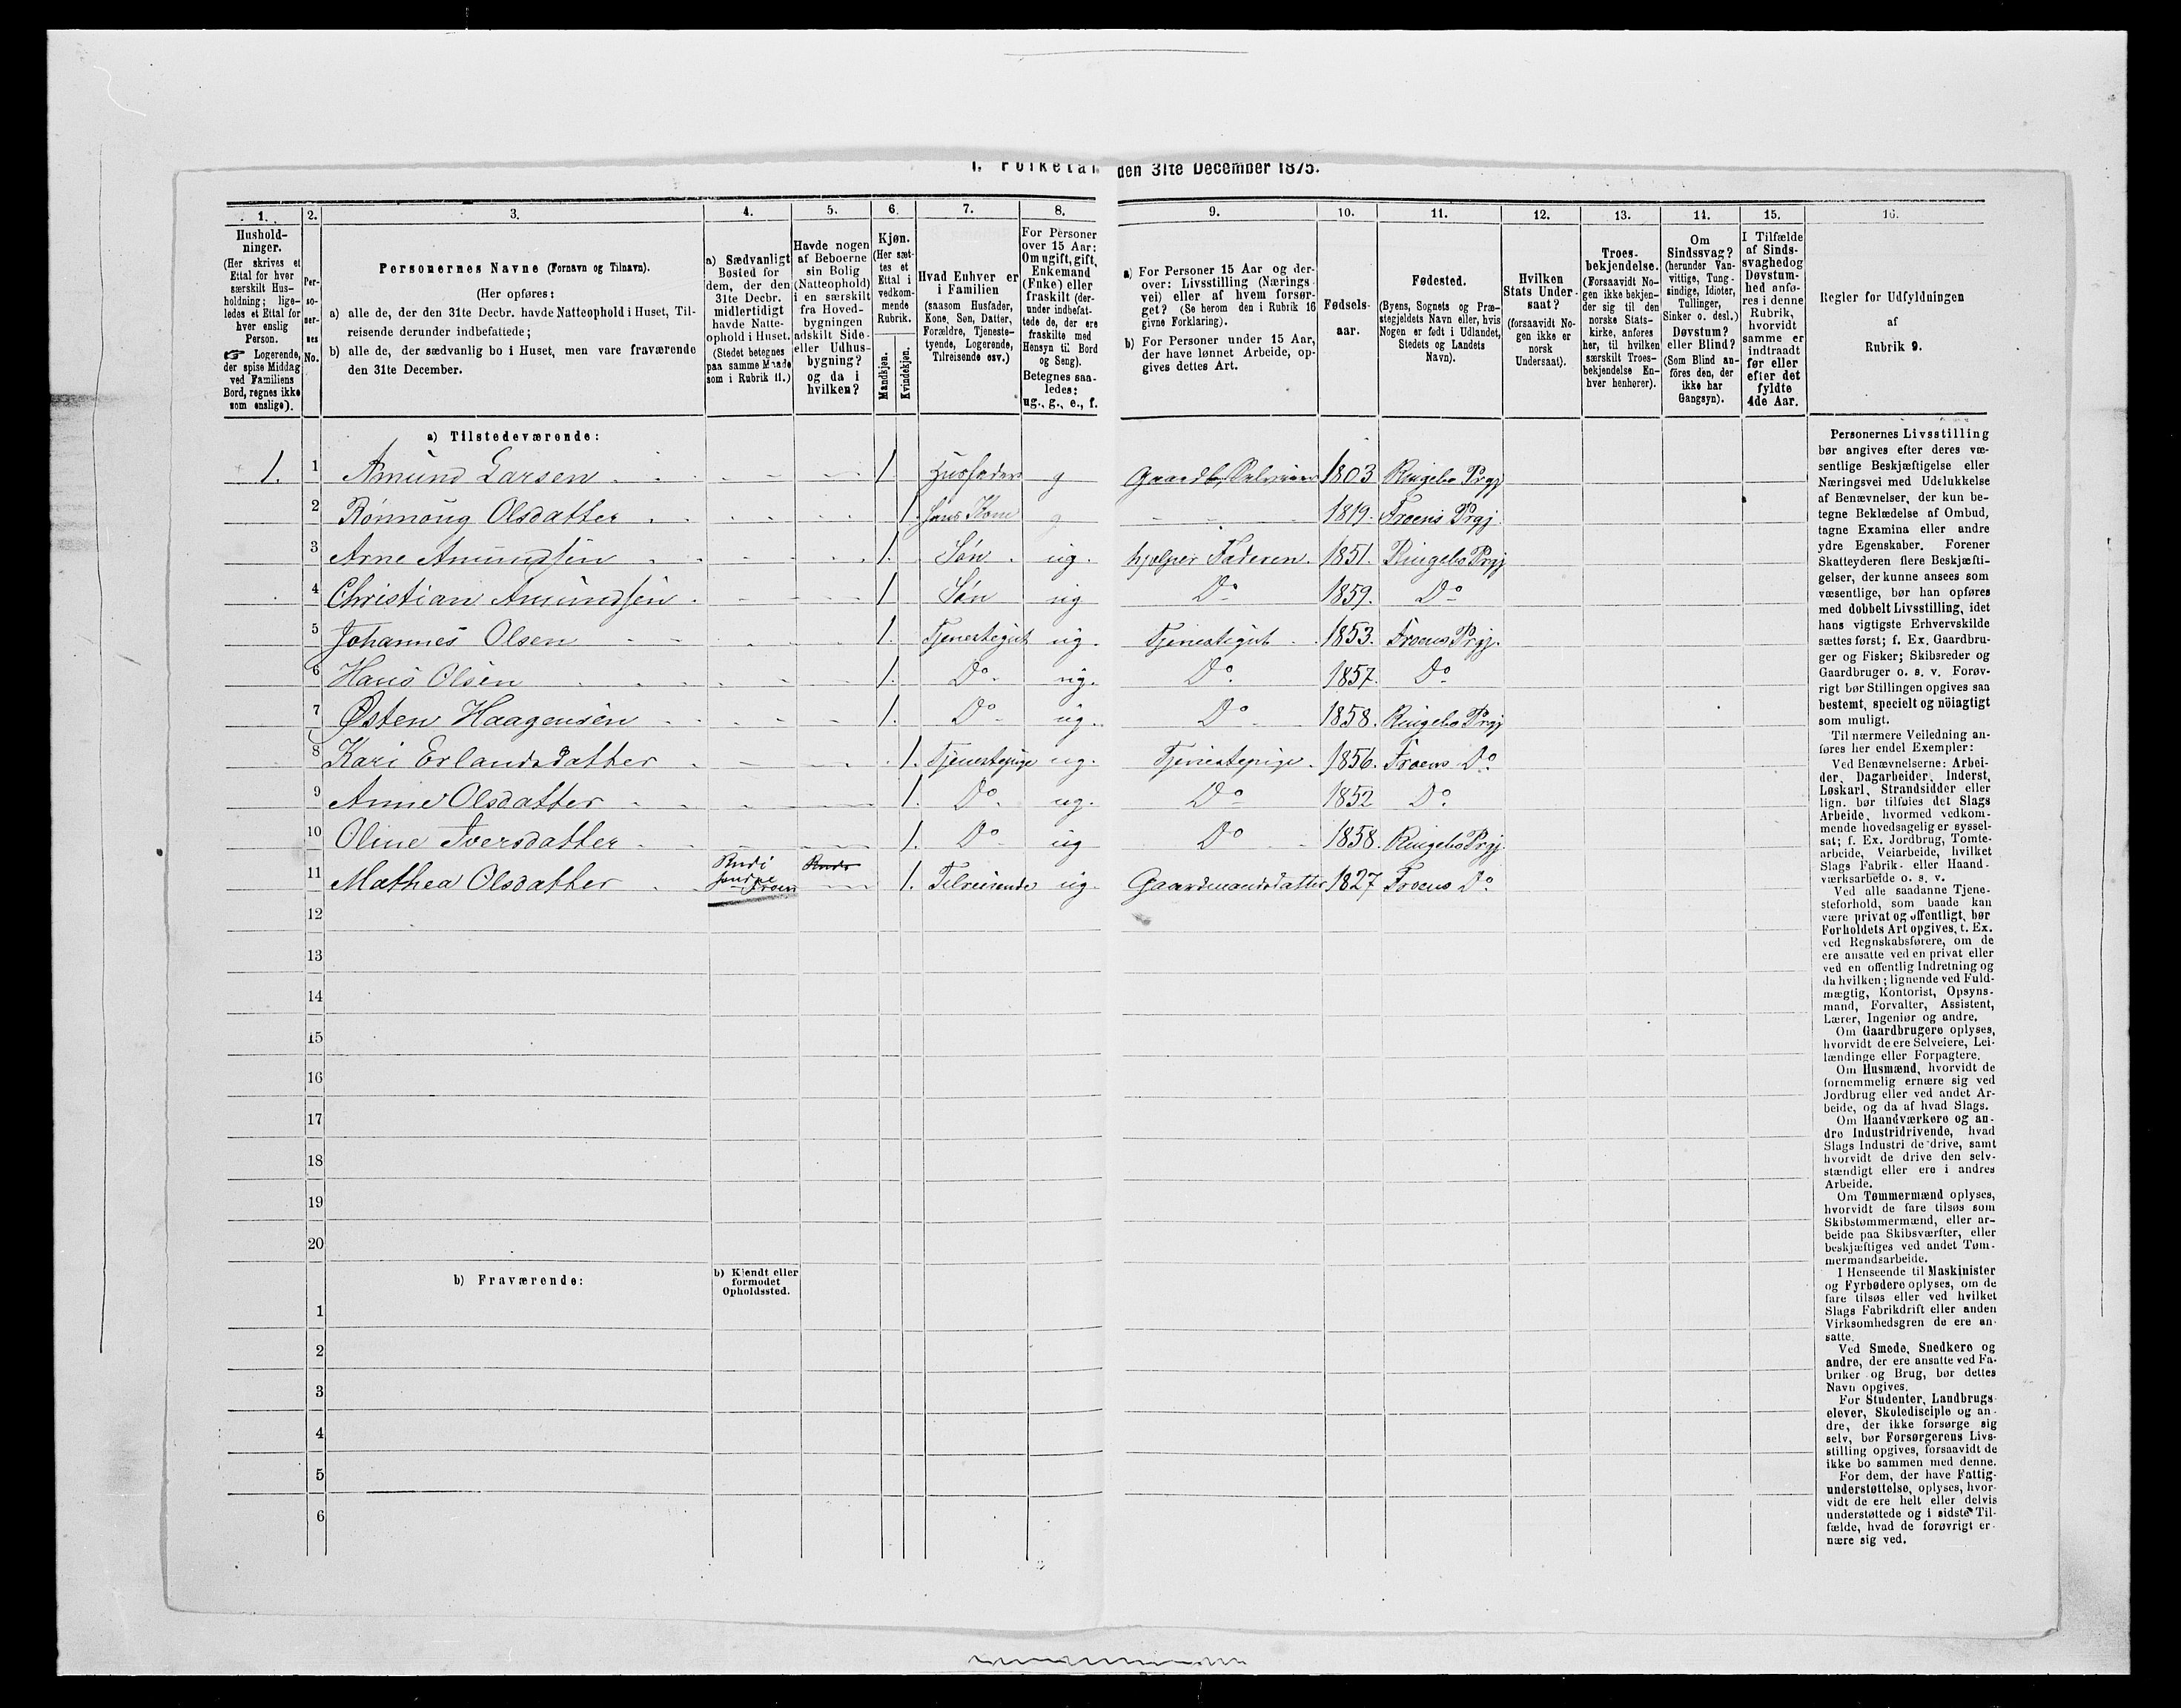 I. Folketal den 31te December 1875.
1. 2. 3. 4. 5. 6. 7. 8. 9. 10. 11. 12. 13. 14. 15. 16.
Hushold-
ninger.
(Her skrives et
Ettal for hver
særskilt Hus-
holdning; lige-
ledes et Ettal for
hver enslig
Person.
☞ Logerende,
der spise Middag
ved Familiens
Bord, regnes ikke
som enslige).
Per-
so-
ner-
nes
No.
Personernes Navne (Fornavn og Tilnavn).
(Her opføres:
a) alle de, der den 31te Decbr. havde Natteophold i Huset, Til-
reisende derunder indbefattede;
b) alle de, der sædvanlig bo i Huset, men vare fraværende
den 31te December.
a) Sædvanligt
Bosted for
dem, der den
31te Decbr.
midlertidigt
havde Natte-
ophold i Huset.
(Stedet betegnes
paa samme Maade
som i Rubrik 11.)
Havde nogen
af Beboerne
sin Bolig
(Natteophold)
i en særskilt
fra Hoved-
bygningen
adskilt Side-
eller Udhus-
bygning?
og da i
hvilken?
Kjøn.
(Her sæt-
tes et
Ettal i
vedkom-
mende
Rubrik.
Mandkjøn.
Kvindekjøn.
Hvad Enhver er
i Familien
(saasom Husfader,
Kone, Søn, Datter,
Forældre, Tjeneste-
tyende, Logerende,
Tilreisende osv.)
For Personer
over 15 Aar:
Om ugift, gift,
Enkemand
(Enke) eller
fraskilt (der-
under indbefat-
tede de, der ere
fraskilte med
Hensyn til Bord
og Seng).
Betegnes saa-
ledes:
ug., g., e., f.
a) For Personer 15 Aar og der-
over: Livsstilling (Nærings-
vei) eller af hvem forsør-
get? (Se herom den i Rubrik 16
givne Forklaring).
b) For Personer under 15 Aar,
der have lønnet Arbeide, op-
gives dettes Art.
Fødsels-
aar.
Fødested.
(Byens, Sognets og Præ-
stegjeldets Navn eller, hvis
Nogen er født i Udlandet,
Stedets og Landets
Navn).
Hvilken
Stats Under-
saat?
(forsaavidt No-
gen ikke er
norsk
Undersaat).
Troes-
bekjendelse.
(Forsaavidt No-
gen ikke bekjen-
der sig til den
norske Stats-
kirke, anføres
her, til hvilken
særskilt Troes-
bekjendelse En-
hver henhører).
Om
Sindssvag?
(herunder Van-
vittige, Tung-
sindige, Idioter,
Tullinger,
Sinker o. desl.)
Døvstum?
eller Blind?
(Som Blind an-
föres den, der
ikke har
Gangsyn).
I Tilfælde
af Sinds-
svaghed og
Døvstum-
hed anfø-
res i denne
Rubrik,
hvorvidt
samme er
indtraadt
før eller
efter det
fyldte
4de Aar.
Regler for Udfyldningen
af
Rubrik 9.
a) Tilstedeværende:
1. 1 Amund Larsen 1 Husfader g Gaardb. Selveier 1803 Ringebo Prgj
2 Rönnoug Olsdatter 1. hans Kone g 1819. Froens Prgj.
3 Arne Amundsen 1. Søn ug. hjelper Faderen. 1851. Ringebo Prgj
4 Christian Amundsen 1 Søn ug Do 1859. Do
5 Johannes Olsen 1. Tjenestegut ug. Tjenestegut 1853. Froens Prgj.
6 Hans Olsen 1. Do ug. Do. 1857. Do
7 Østen Haagensen 1. Do ug. Do 1858. Ringebo Prgj
8 Kari Erlandsdatter 1. Tjenestepige ug. Tjenestepige. 1856. Froens Do.
9 Anne Olsdatter 1. Do. ug. Do 1852 Do.
10 Oline Iversdatter 1. Do ug Do 1858. Ringebo Prgj.
11 Mathea Olsdatter Froen 1. Tilreisende ug. Gaardmandsdatter 1827 Froens Do.
12
13
14
15
16
17
18
19
20
b) Fraværende:
b) Kjendt eller
formodet
Opholdssted.
1
2
3
4
5
6
Personernes Livsstilling
bør angives efter deres væ-
sentlige Beskjæftigelse eller
Næringsvei med Udelukkelse
af Benævnelser, der kun be-
tegne Beklædelse af Ombud,
tagne Examina eller andre
ydre Egenskaber. Forener
Skatteyderen flere Beskjæfti-
gelser, der kunne ansees som
væsentlige, bør han opføres
med dobbelt Livsstilling, idet
hans vigtigste Erhvervskilde
sættes først; f. Ex. Gaardbru-
ger og Fisker; Skibsreder og
Gaardbruger o. s. v. Forøv-
rigt bør Stillingen opgives saa
bestemt, specielt og nöiagtigt
som muligt.
Til nærmere Veiledning an-
føres her endel Exempler:
Ved Benævnelserne: Arbei-
der, Dagarbeider, Inderst,
Løskarl, Strandsidder eller
lign. bør tilføies det Slags
Arbeide, hvormed vedkom-
mende hovedsagelig er syssel-
sat; f. Ex. Jordbrug, Tomte-
arbeide, Veiarbeide, hvilket
Slags Fabrik- eller Haand-
værksarbeide o. s. v.
Ved alle saadanne Tjene-
steforhold, som baade kan
være privat og offentligt, bør
Forholdets Art opgives, t. Ex.
ved Regnskabsførere, om de
ere ansatte ved en privat eller
ved en offentlig Indretning og
da hvilken; lignende ved Fuld-
mægtig, Kontorist, Opsyns-
mand, Forvalter, Assistent,
Lærer, Ingeniør og andre.
Om Gaardbrugere oplyses,
hvorvidt de ere Selveiere, Lei-
lændinge eller Forpagtere.
Om Husmænd, hvorvidt de
fornemmelig ernære sig ved
Jordbrug eller ved andet Ar-
beide, og da af hvad Slags.
Om Haandværkere og an-
dre Industridrivende, hvad
Slags Industri de drive, samt
hvorvidt de drive den selv-
stændigt eller ere i andres
Arbeide.
Om Tømmermænd oplyses,
hvorvidt de fare tilsøs som
Skibstømmermænd, eller ar-
beide paa Skibsværfter, eller
beskjæftiges ved andet Tøm-
mermandsarbeide.
I Henseende til Maskinister
og Fyrbødere oplyses, om de
fare tilsøs eller ved hvilket
Slags Fabrikdrift eller anden
Virksomhedsgren de ere an-
satte.
Ved Smede, Snedkere og
andre, der ere ansatte ved Fa-
briker og Brug, bør dettes
Navn opgives.
For Studenter, Landbrugs-
elever, Skoledisciple og an-
dre, der ikke forsørge sig
selv, bør Forsørgerens Livs-
stilling opgives, forsaavidt de
ikke bo sammen med denne.
For dem, der have Fattig-
understøttelse, oplyses, hvor-
vidt de ere helt eller delvis
understøttede og i sidste Til-
fælde, hvad de forøvrigt er-
nære sig ved.